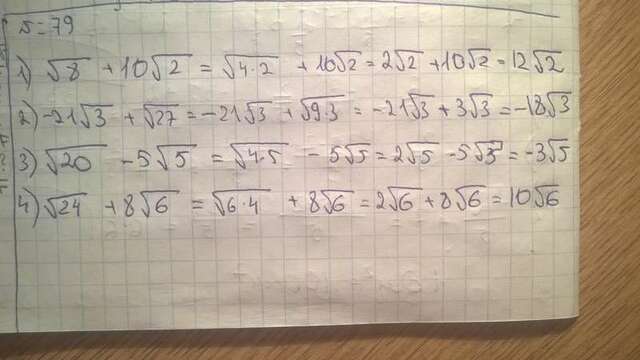 5=79
1) √8 + 10√2 = √4·2 + 10√2 = 2√2 + 10√2 = 12√2
2) -21√3 + √27 = -21√3 + √9·3 = -21√3 + 3√3 = -18√3
3) √20 - 5√5 = √4·5 - 5√5 = 2√5 - 5√5 = -3√5
4) √24 + 8√6 = √6·4 + 8√6 = 2√6 + 8√6 = 10√6